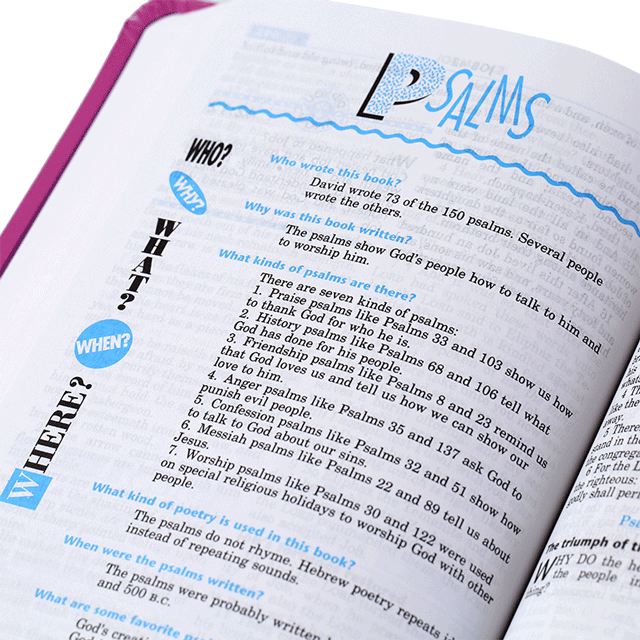 PSALMS
WHO?
WHY?
WHAT?
WHEN?
WHERE?
Who wrote this book?
David wrote 73 of the 150 psalms. Several people
wrote the others.
Why was this book written?
The psalms show God's people how to talk to him and
to worship him.
What kinds of psalms are there?
There are seven kinds of psalms:
1. Praise psalms like Psalms 33 and 103 show us how
to thank God for who he is.
2. History psalms like Psalms 68 and 106 tell what
God has done for his people.
3. Friendship psalms like Psalms 8 and 23 remind us
that God loves us and tell us how we can show our
love to him.
4. Anger psalms like Psalms 35 and 137 ask God to
punish evil people.
5. Confession psalms like Psalms 32 and 51 show how
to talk to God about our sins.
6. Messiah psalms like Psalms 22 and 89 tell us about
Jesus.
7. Worship psalms like Psalms 30 and 122 were used
on special religious holidays to worship God with other
people.
What kind of poetry is used in this book?
The psalms do not rhyme. Hebrew poetry repeats
instead of repeating sounds.
When were the psalms written?
The psalms were probably written
and 500 B.C.
What are some favorite
God's
4
like the
way.
5 There
and in the
congrega
6 For the
righteous:
shall per
The triumph of
WHY DO the
the people